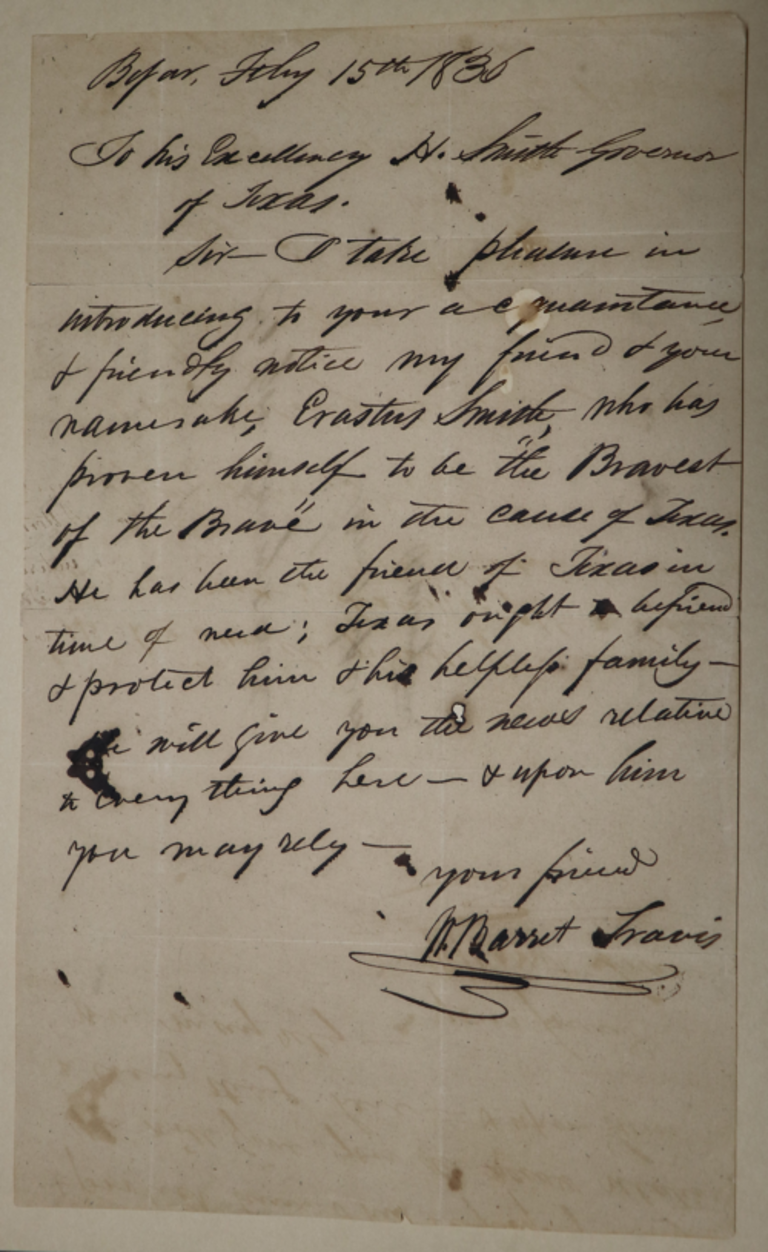 Bejar, Feby 15th 1836
To his Excellency H. Smith Governor
of Texas.
Sir— I take pleasure in
introducing to your acquaintance,
& friendly notice my friend & your
namesake, Erastus Smith, who has
proven himself to be "the Bravest
of the Brave" in the cause of Texas.
He has been the friend of Texas in
time of need; Texas ought to befriend
& protect him & his helpless family—
He will give you the news relative
to every thing here— & upon him
you may rely—
your friend
W. Barret Travis